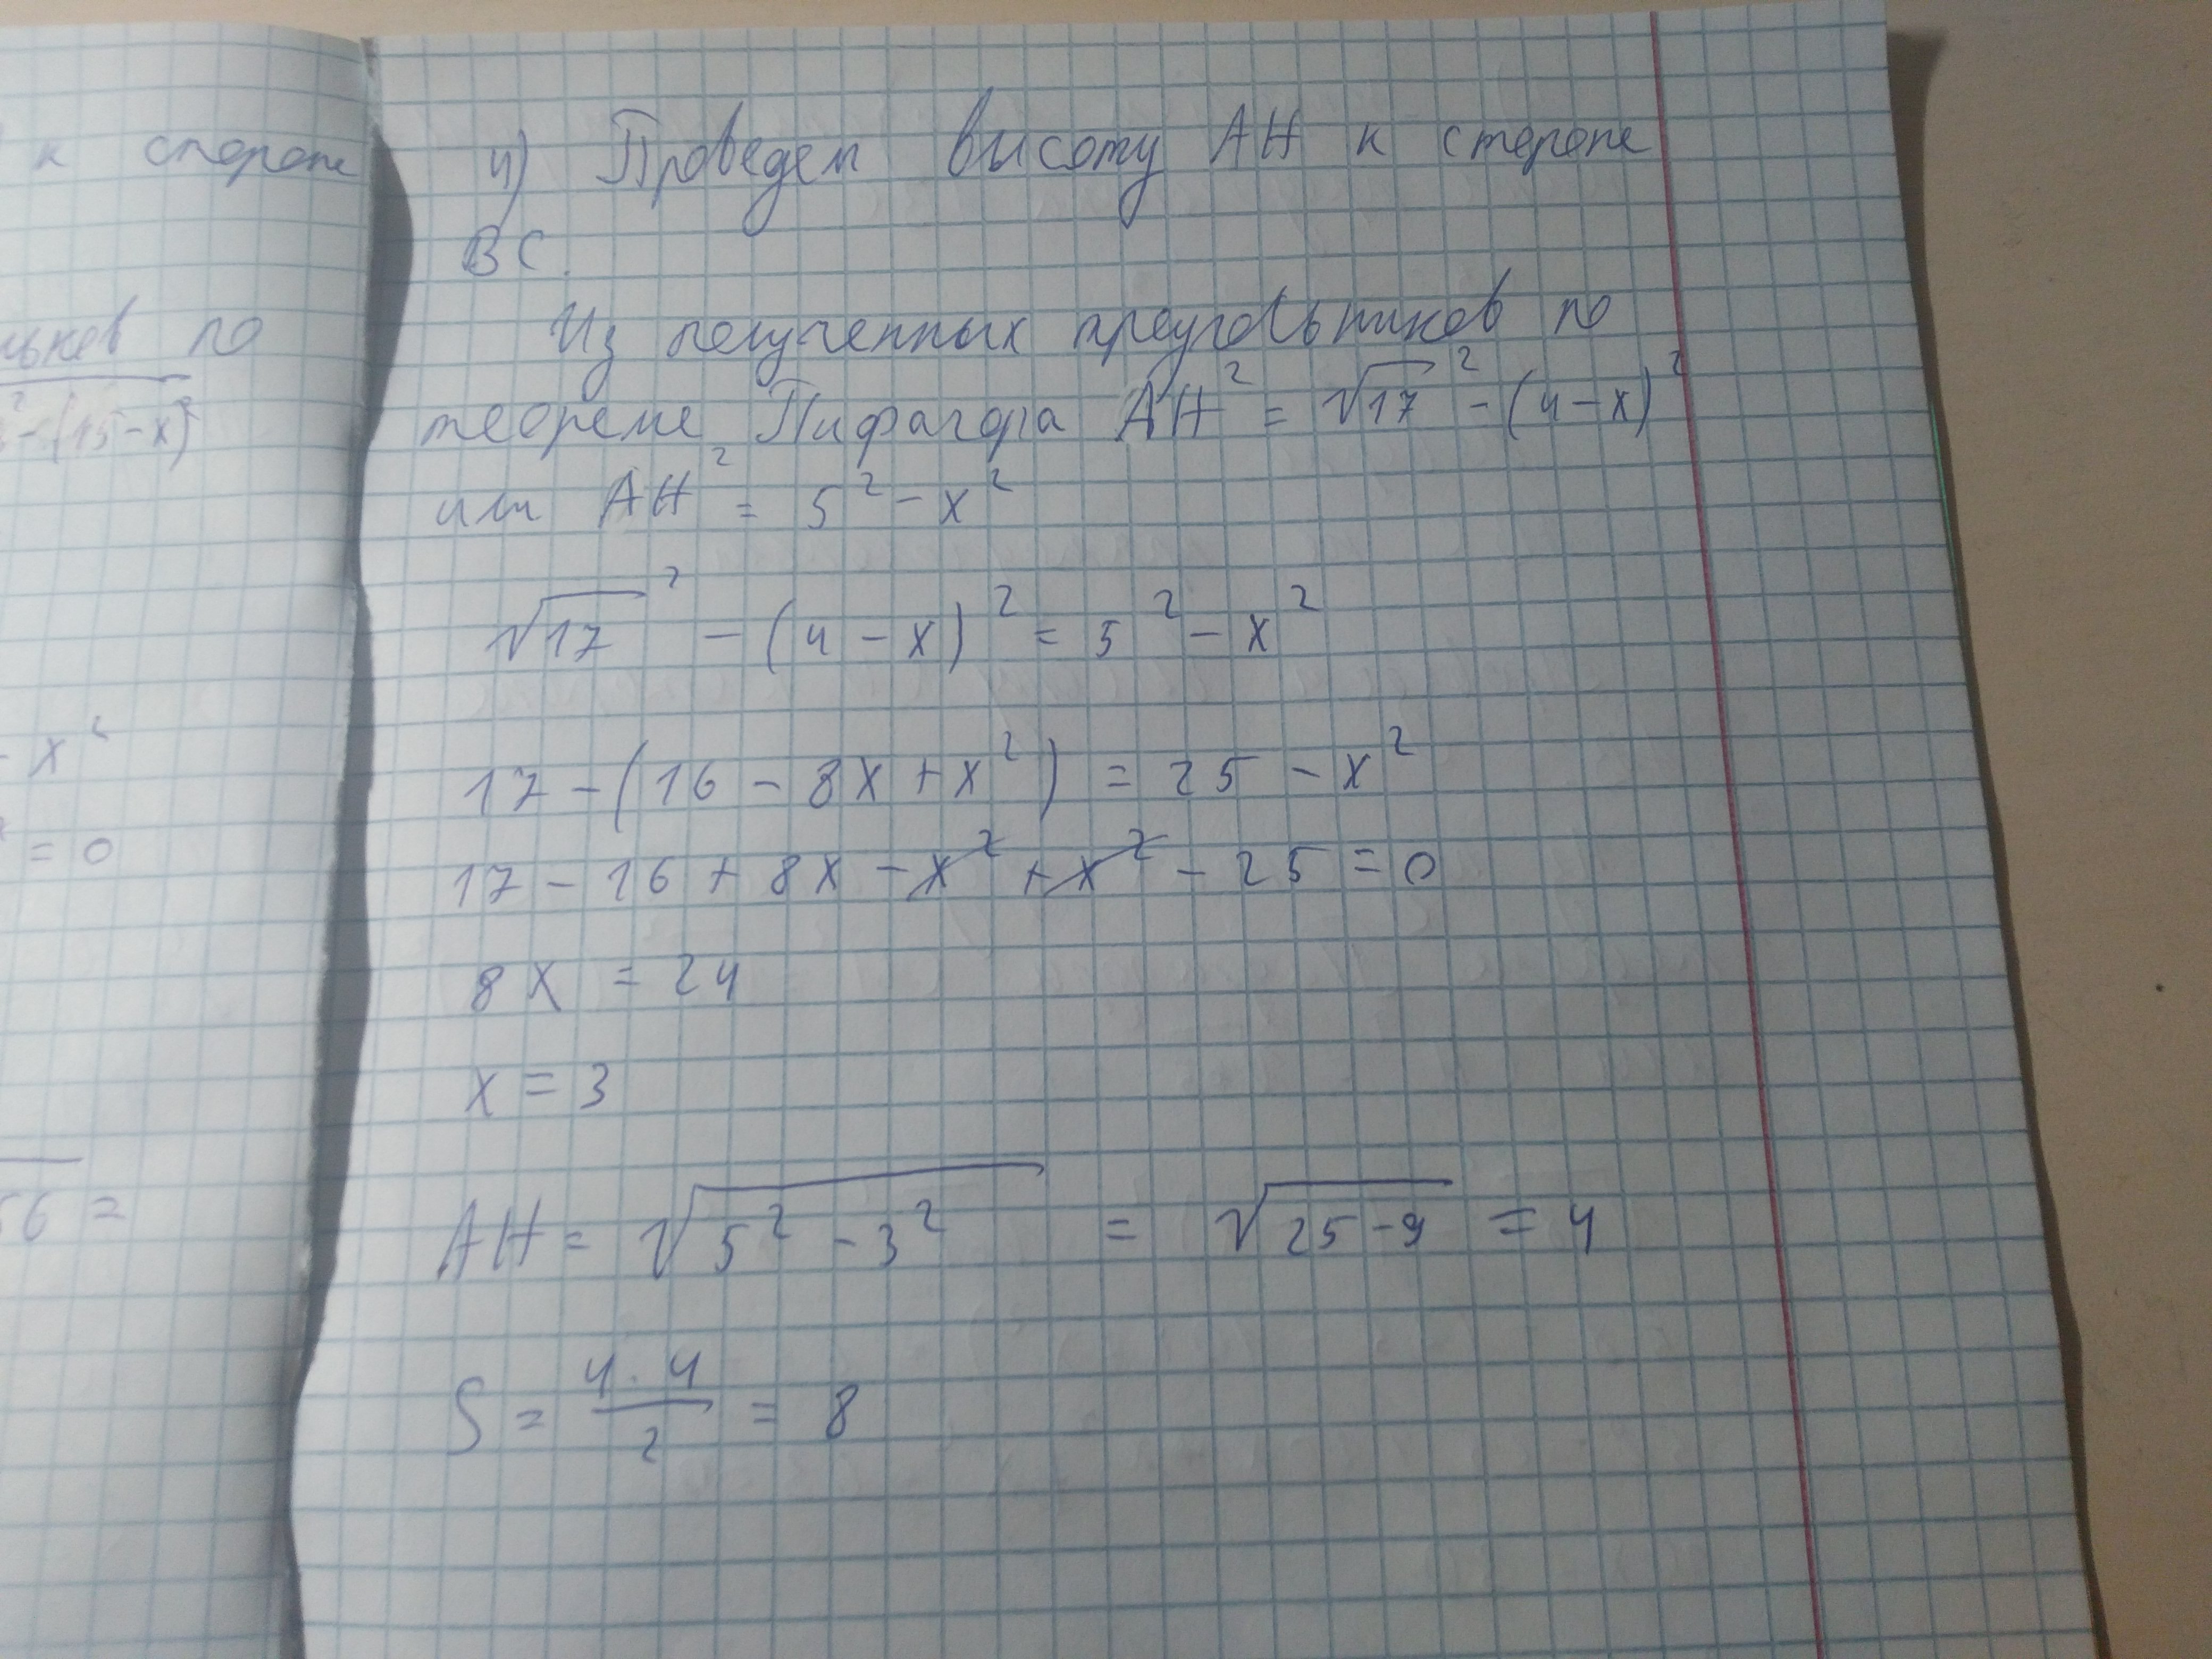 к стороне
по
² - (15 - x)²
- x²
= 0
56 =
4) Проведем высоту AH к стороне
BC.
Из полученных треугольников по
теореме Пифагора AH² = √17² - (4 - x)²
или AH² = 5² - x²
√17² - (4 - x)² = 5² - x²
17 - (16 - 8x + x²) = 25 - x²
17 - 16 + 8x - x² + x² - 25 = 0
8x = 24
x = 3
AH = √(5² - 3²) = √(25 - 9) = 4
S = (4 · 4)/2 = 8